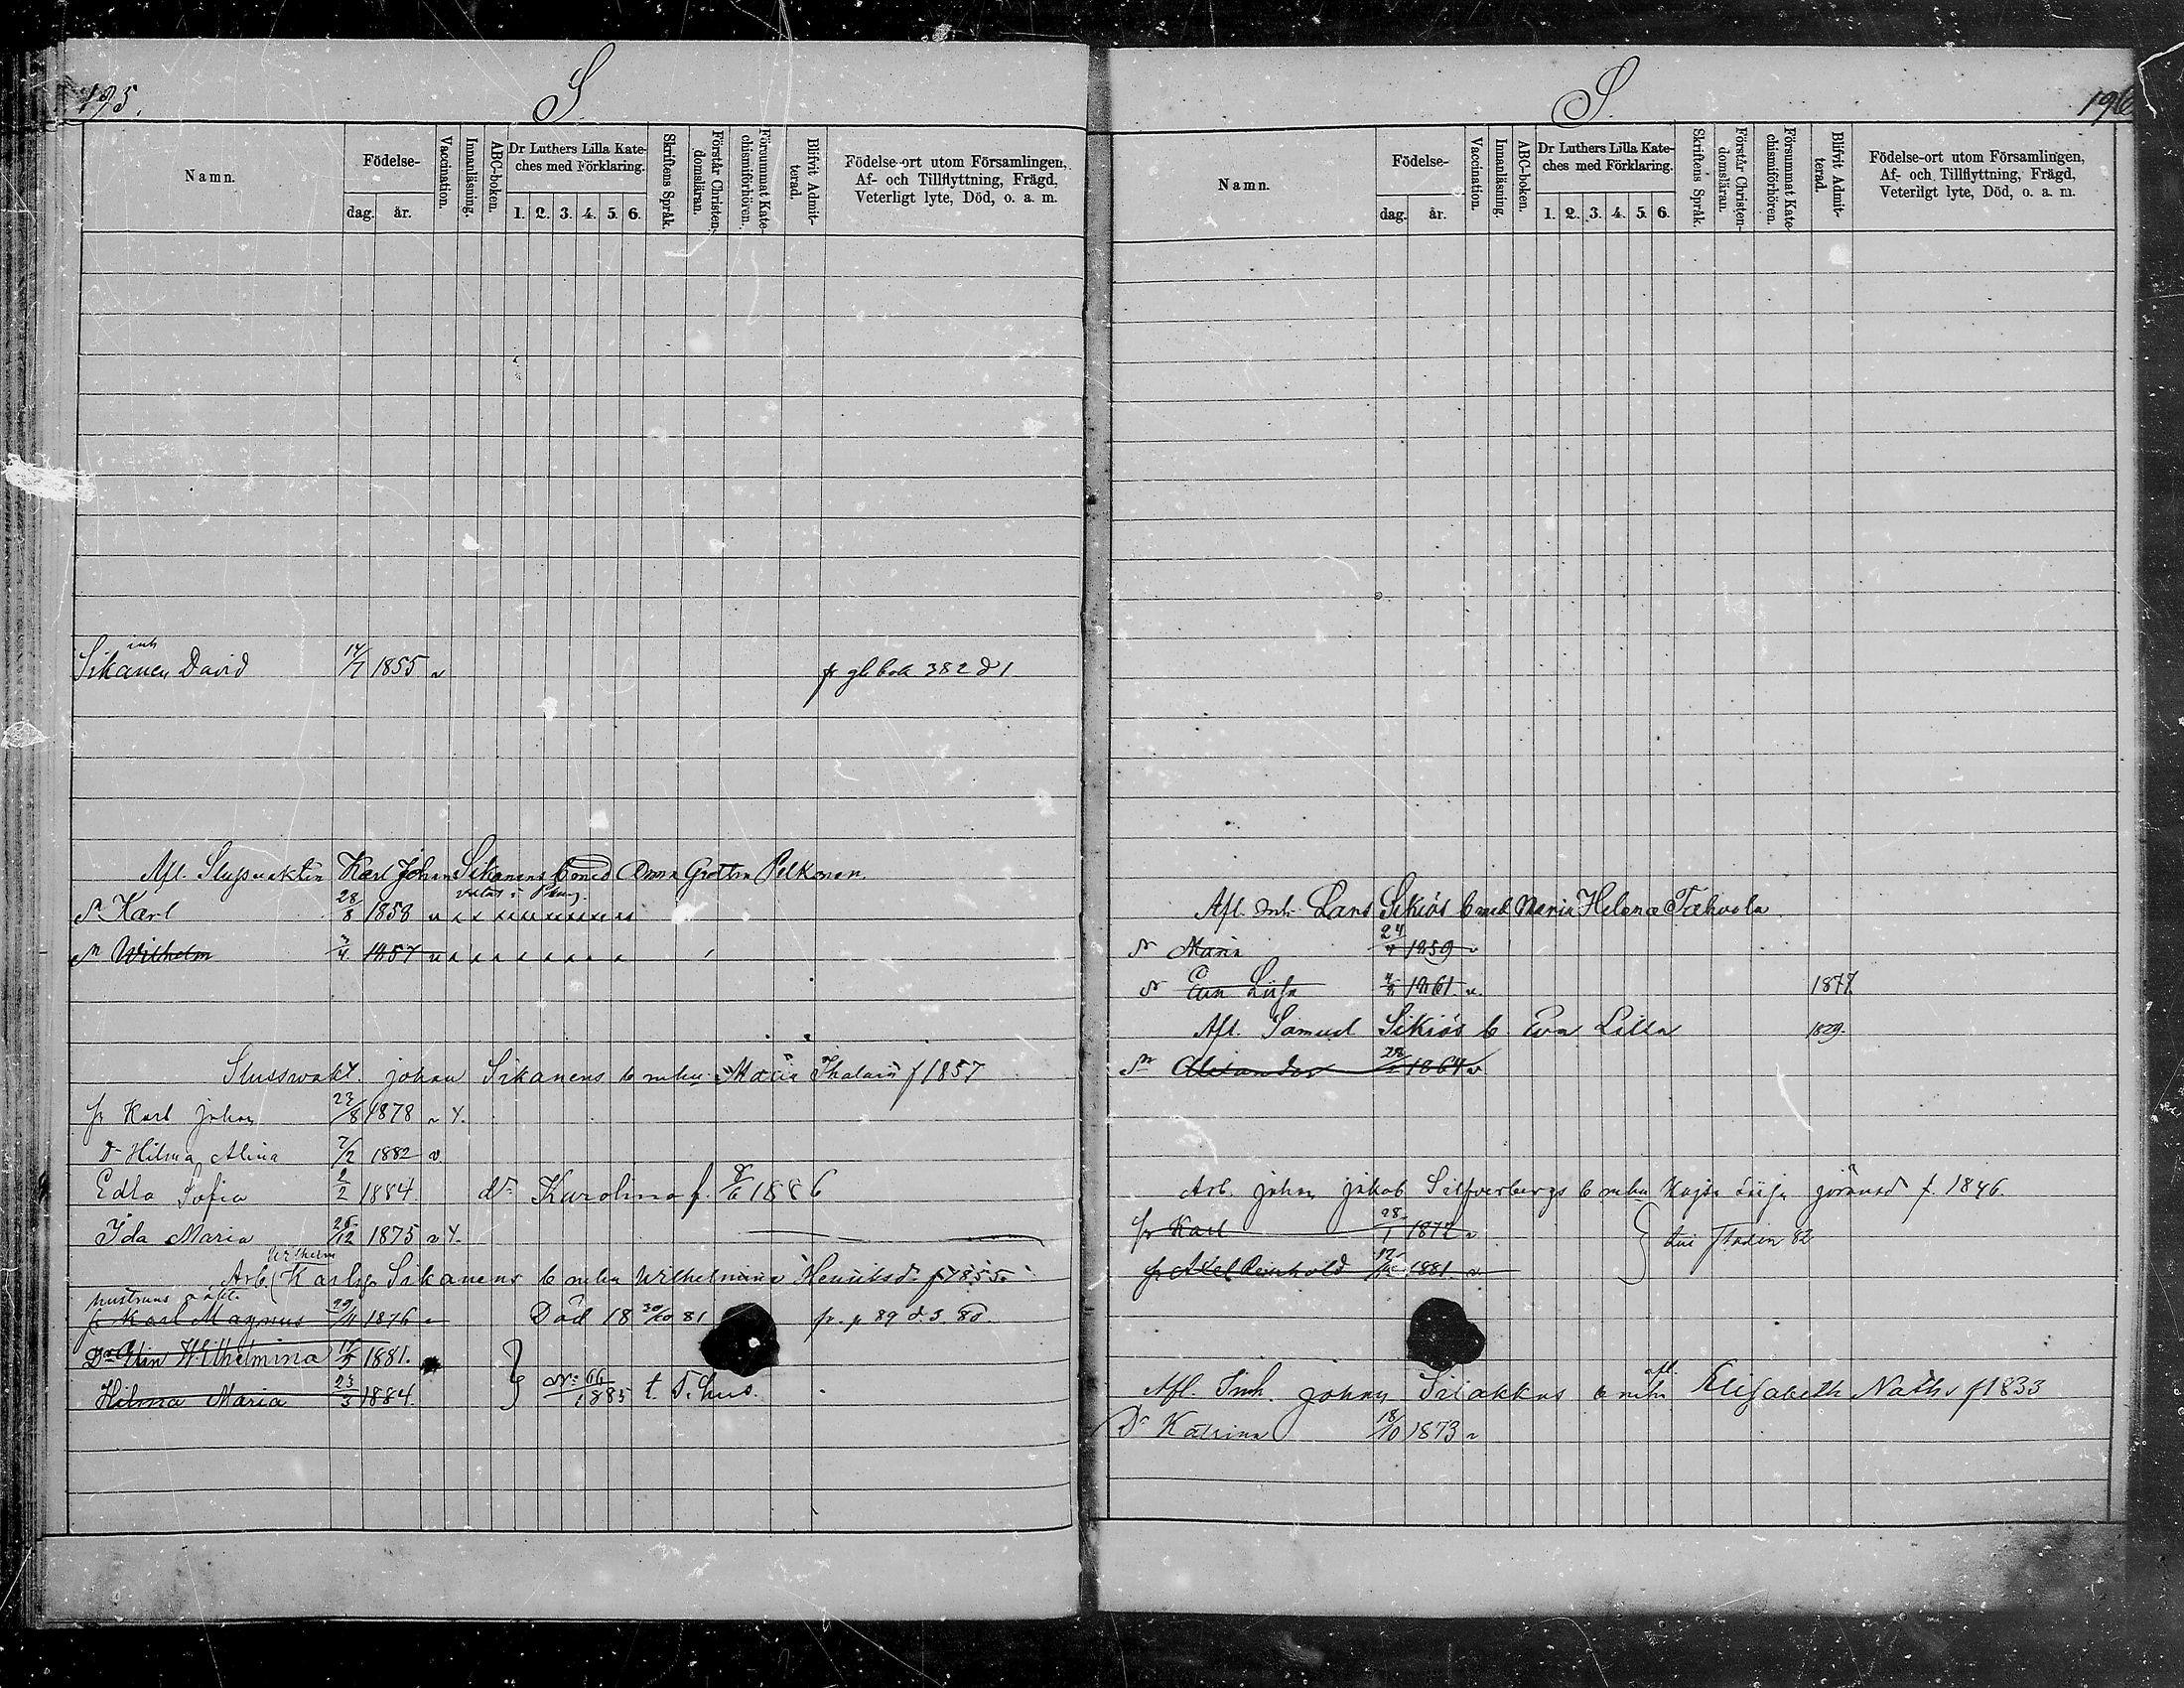 195.
S.
Namn.
Födelse-
dag.
år.
Vaccination.
Innanläsning.
ABC-boken.
Dr Luthers Lilla Kate-
ches med Förklaring.
1. 2. 3. 4. 5. 6.
Skriftens Språk.
Förstår Christen-
domsläran.
Försummat Kate-
chismiförhören.
Blifvit Admit-
terad.
Födelse-ort utom Församlingen,
Af- och Tillflyttning, Frägd,
Veterligt lyte, Död, o. a. m.
inh
Sikanen David 14/7 1855 v fr gl bok 382 d 1
Afl. Slussvakten Karl Johan Sikanens b med Anna Grethe Pelkonen
Sn Karl 28/8 1858 v x x x x x x x x x
Sn Wilhelm 3/4 1857 v x x x x x x x x
Slusswakt. Johan Sikanens b m hu Maria Ihalain f 1857
fr Karl Johan 23/8 1878 v x.
Dr Hilma Alina 7/2 1882 v.
Edla Sofia 2/2 1884. dr Karolina f. 8/6 1886
Ida Maria 25/12 1875 v x.
Wilhelm
Arb. Karl Sikanens b m hu Wilhelmina Henriksdr f 1855
hustruns oäkta
fr Karl Magnus 29/11 1876 v Död 18 30/10 81 fr. p 89 d. 3 80.
Dr Elin Wilhelmina 17/5 1881.
Hilma Maria 23/3 1884. } Nr 66/1885 t. T. hus.
S.
196
Namn.
Födelse-
dag.
år.
Vaccination.
Innanläsning.
ABC-boken.
Dr Luthers Lilla Kate-
ches med Förklaring.
1. 2. 3. 4. 5. 6.
Skriftens Språk.
Förstår Christen-
domsläran.
Försummat Kate-
chismiförhören.
Blifvit Admit-
terad.
Födelse-ort utom Församlingen,
Af- och Tillflyttning, Frägd,
Veterligt lyte, Död, o. a. m.
Afl. inh. Lars Sikiös b med Maria Helena Tahvola
Dr Maria 24 1859 v
Dr Eva Liisa 1861. v. 1877
Afl. Samuel Sikiös b Eva Lilla 1829.
Sn Alexander 1864 v
Arb. Johan Jakob Silfverbergs b m hu Kajsa Liisa Göransdr f. 1846.
fr Karl 28/1 1872 v
fr Axel Reinhold 12 1881. v } staden 82
afl.
Afl. Inh. Johan Siiakkas b m hu Elisabeth Näths f 1833
Dr Katrina 18/10 1873 v